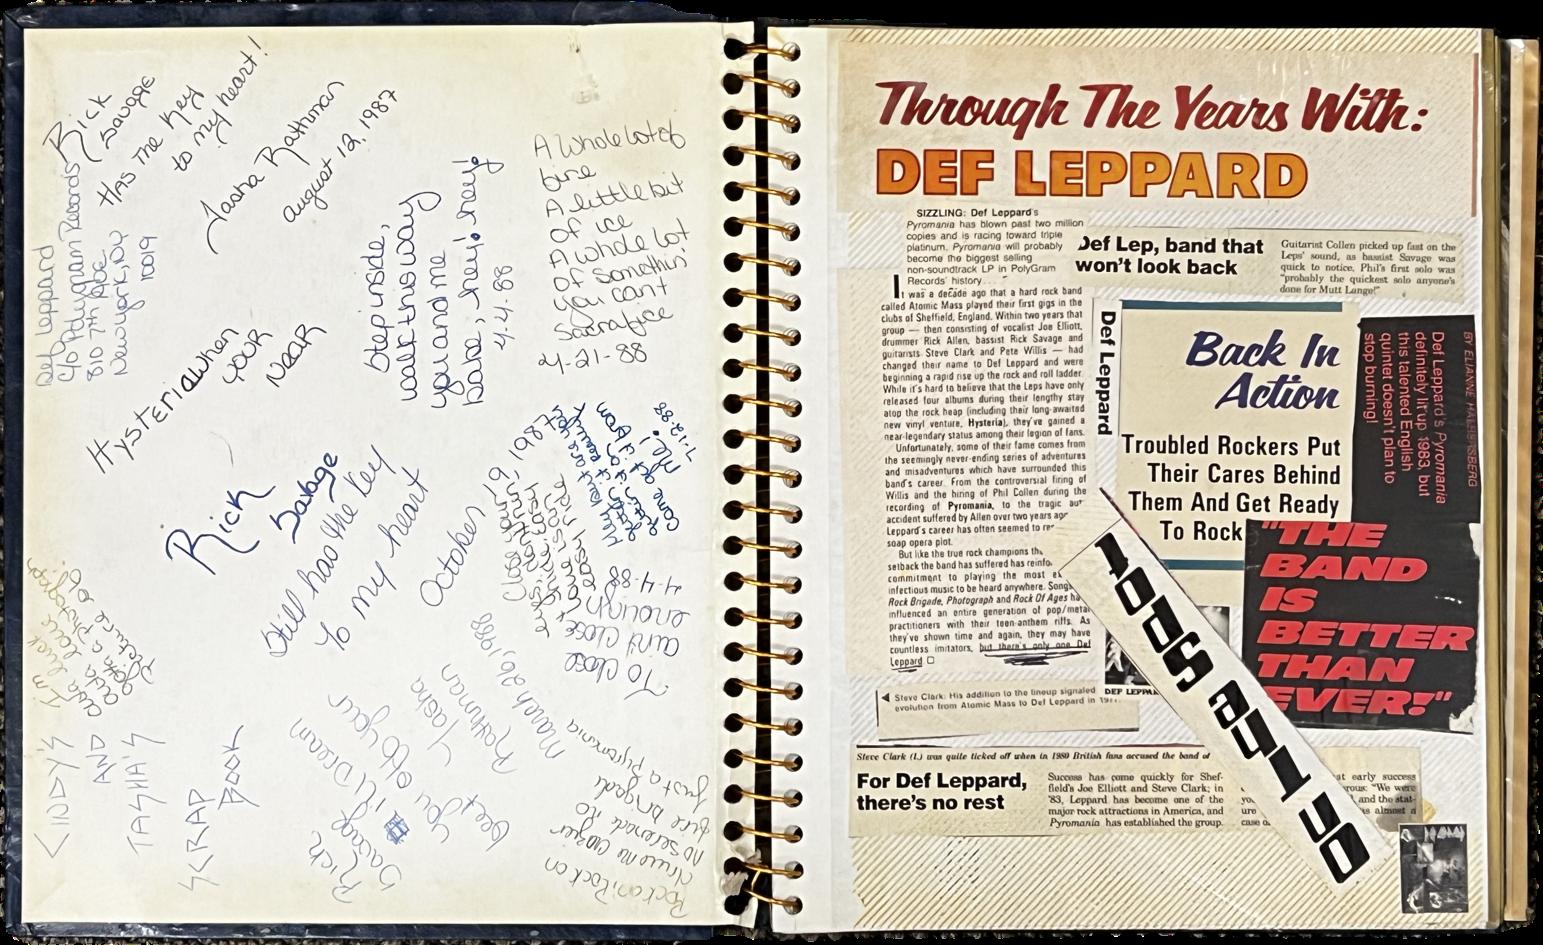 Rick
Savage
Has the key
to my heart!
Tasha Rathman
august 12, 1987
Def Leppard
C/O Polygram Records
810 7th Ave
New york, Ny
10019
Step inside,
walk this way
you and me
babe, hey! hey!
4-4-88
A Whole lot of
fire
A little bit
of ice
A whole lot
of somethin'
you can't
sacrafice
4-21-88
Hysteria when
your
near
Rick
Savage
Still has the key
to my heart
October 9, 1987
come get it from
me!
7-12-88
To close
aint close
enough
4-4-88
I'm luck
outa love
gotta photograph
Picture of
Tasha
Rathman
March 26, 1988
CINDY'S
AND
TASHA'S
SCRAP
BOOK
Rick
Savage ill Dream
You off your
feet
Rock on! Rock on
Drive no crazier
no serenade no
fire brigade
just a Pyromania
Through The Years With:
DEF LEPPARD
SIZZLING: Def Leppard's
Pyromania has blown past two million
copies and is racing toward triple
platinum. Pyromania will probably
become the biggest selling
non-soundtrack LP in PolyGram
Records' history
It was a decade ago that a hard rock band
called Atomic Mass played their first gigs in the
clubs of Sheffield, England. Within two years that
group — then consisting of vocalist Joe Elliott,
drummer Rick Allen, bassist Rick Savage and
guitarists Steve Clark and Pete Willis — had
changed their name to Def Leppard and were
beginning a rapid rise up the rock and roll ladder.
While it's hard to believe that the Leps have only
released four albums during their lengthy stay
atop the rock heap (including their long-awaited
new vinyl venture, Hysteria), they've gained a
near-legendary status among their legion of fans.
Unfortunately, some of their fame comes from
the seemingly never-ending series of adventures
and misadventures which have surrounded this
band's career. From the controversial firing of
Willis and the hiring of Phil Collen during the
recording of Pyromania, to the tragic aut
accident suffered by Allen over two years ago
Leppard's career has often seemed to re
soap opera plot.
But like the true rock champions the
setback the band has suffered has reinfo
commitment to playing the most ex
infectious music to be heard anywhere. Songs
Rock Brigade, Photograph and Rock Of Ages ha
influenced an entire generation of pop/metal
practitioners with their teen-anthem riffs. As
they've shown time and again, they may have
countless imitators, but there's only one Def
Leppard □
Def Lep, band that
won't look back
Guitarist Collen picked up fast on the
Leps' sound, as bassist Savage was
quick to notice. Phil's first solo was
"probably the quickest solo anyone's
done for Mutt Lange!"
Def Leppard
Back In
Action
Troubled Rockers Put
Their Cares Behind
Them And Get Ready
To Rock
Def Leppard's Pyromania
definitely lit up 1983, but
this talented English
quintet doesn't plan to
stop burning!
"THE
BAND
IS
BETTER
THAN
EVER!"
DEF LEPPA
Steve Clark: His addition to the lineup signaled
evolution from Atomic Mass to Def Leppard in 197
Steve Clark (L) was quite ticked off when in 1980 British fans accused the band of
For Def Leppard,
there's no rest
Success has come quickly for Shef-
field's Joe Elliott and Steve Clark; in
'83, Leppard has become one of the
major rock attractions in America, and
Pyromania has established the group.
at early success
rous: "We were
and the stat-
s almost a